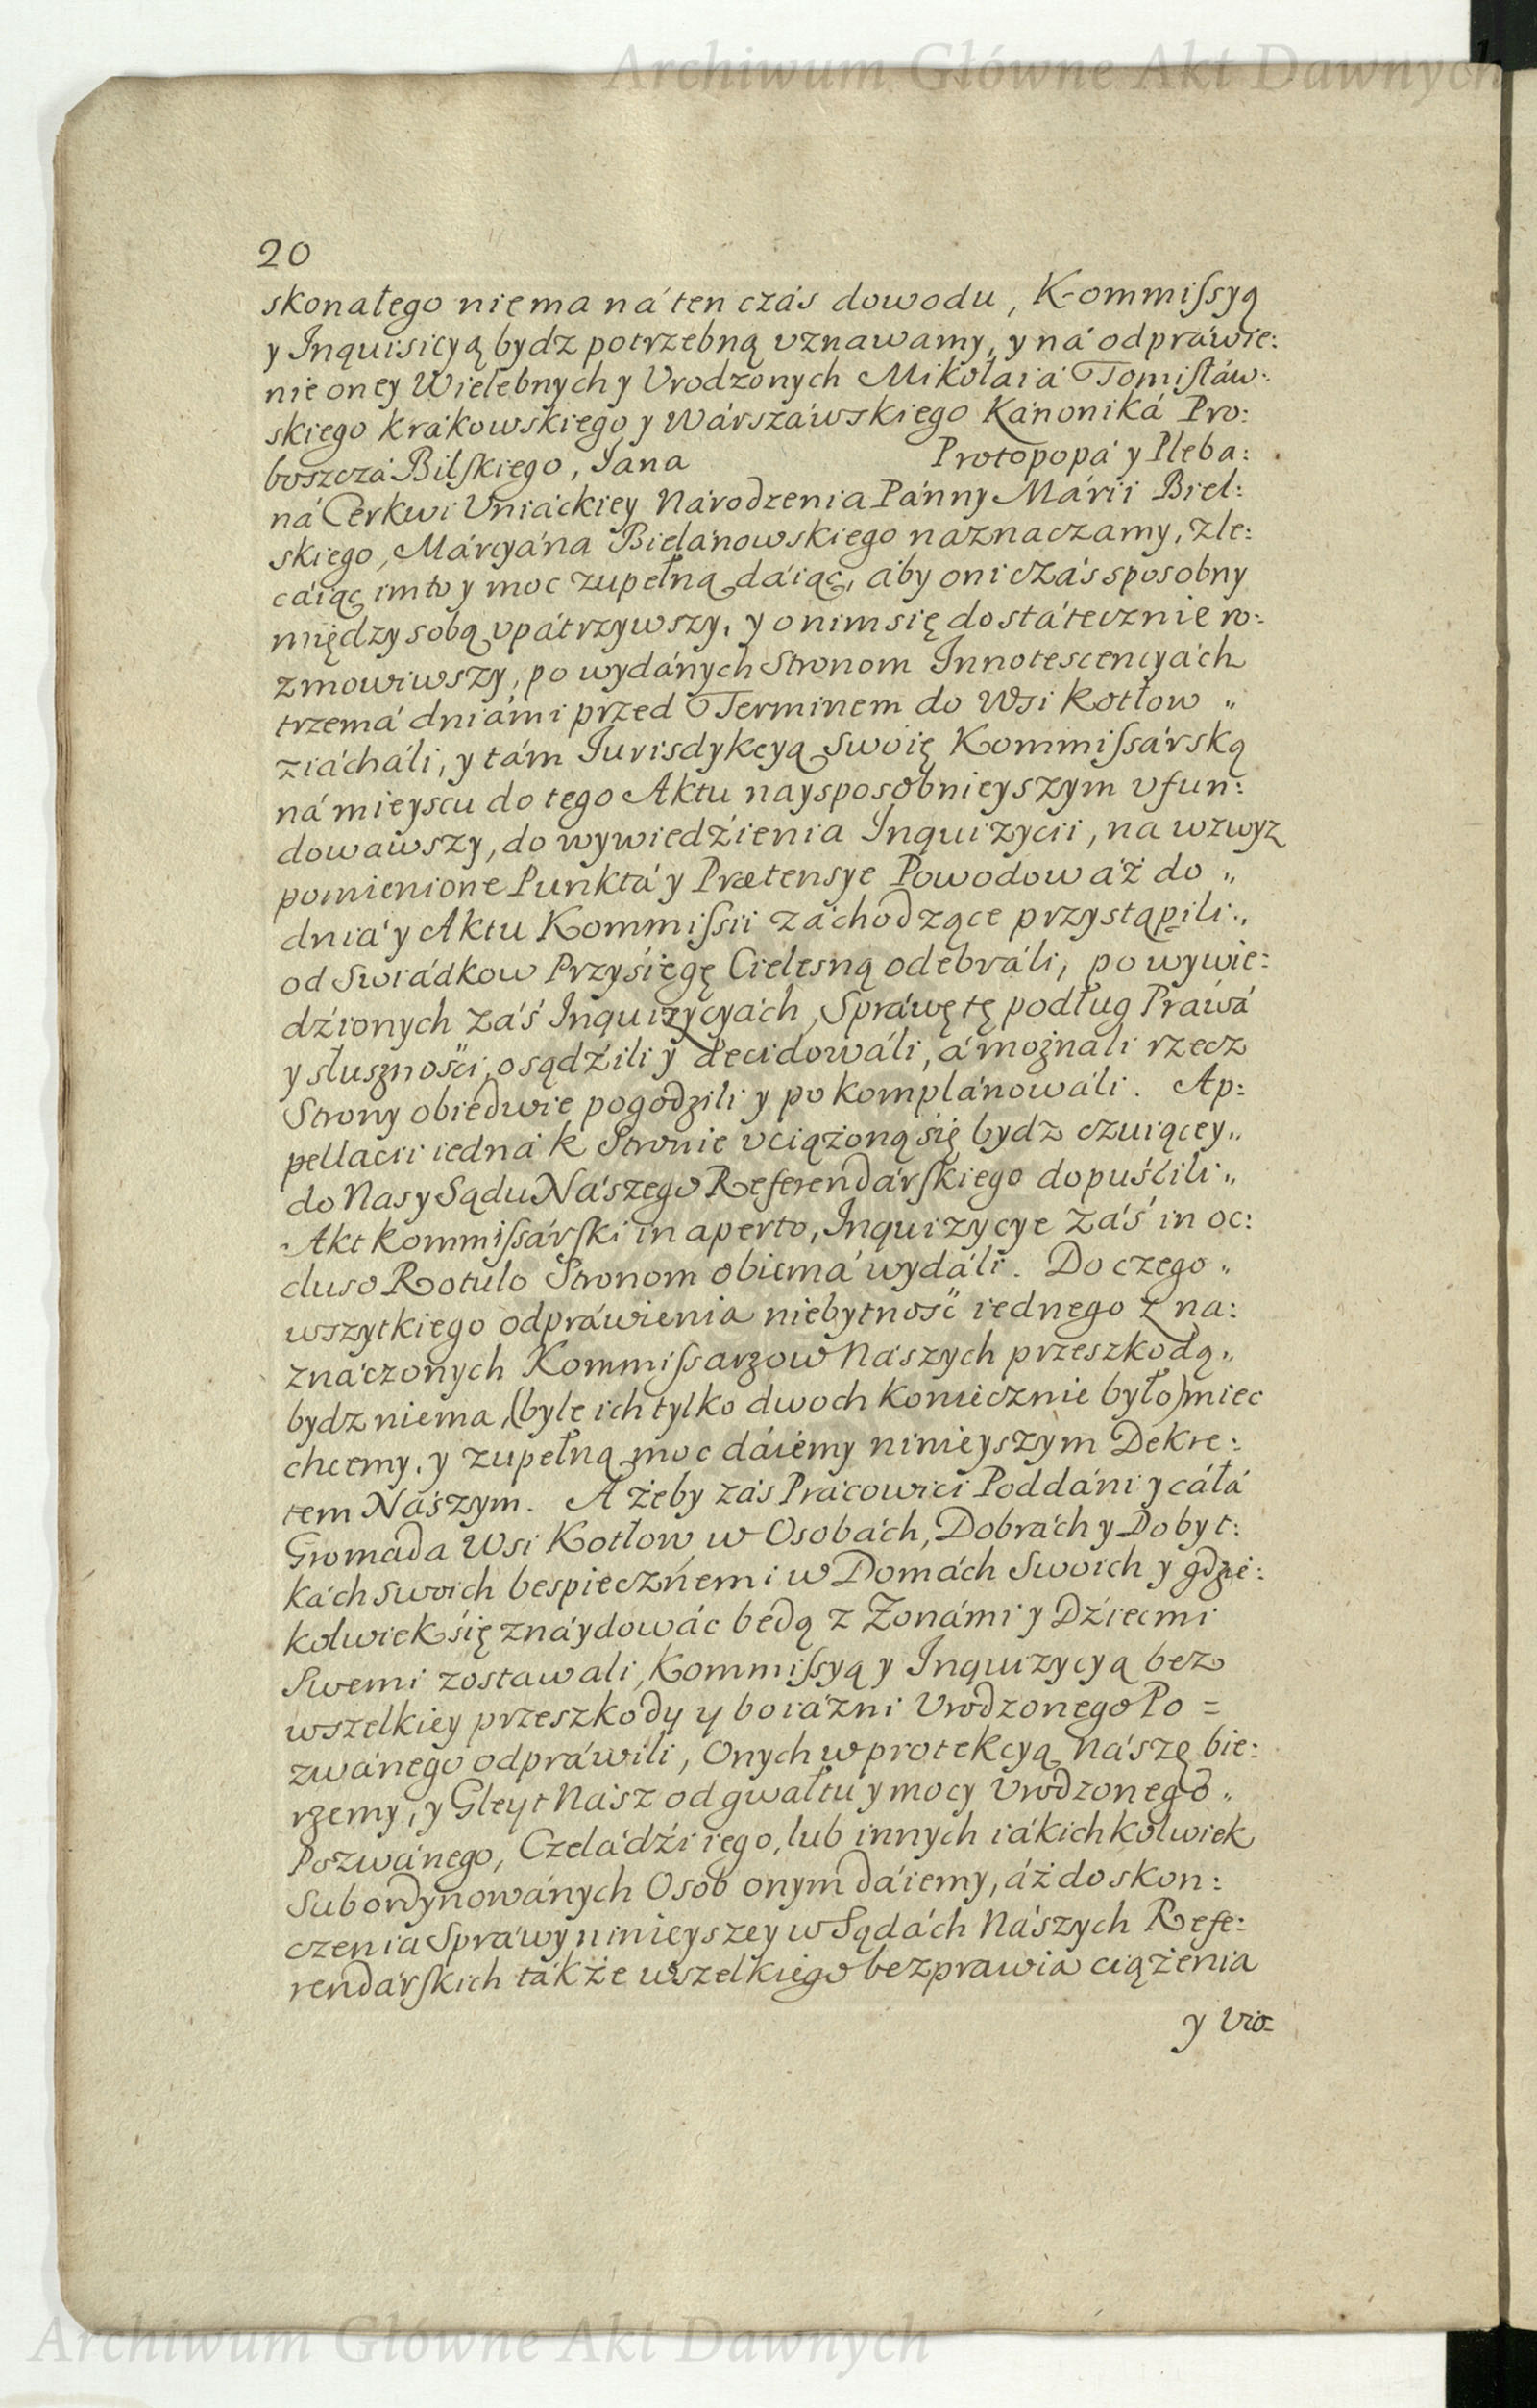 Archiwum Główne Akt Dawnych
20
skonałego niema ná ten czás dowodu, Kommissyą
y Inquisicyą bydz potrzebną vznawamy, y ná odpráwie:
nie oney Wielebnych y Vrodzonych Mikołaiá Tomisłáw:
skiego krákowskiego y Wárszáwskiego Kánoniká Pro:
boszczá Bilskiego, Jana Protopopá y Pleba:
ná Cerkwi Vniáckiey Národzenia Pánny Márii Biel:
skiego, Márcyána Bielánowskiego náznaczamy, zle:
cáiąc im to y moc zupełną dáiąc, áby oni czás sposobny
między sobą vpátrzywszy, y o nim się dostátecznie ro:
zmowiwszy, po wydánych Stronom Innotescencyách
trzemá dniámi przed Terminem do Wsi Kotłow „
ziácháli, y tám Jurisdykcyą Swoię Kommissárską
ná mieyscu do tego Aktu naysposobnieyszym vfun:
dowawszy, do wywiedźienia Inquizycii, na wzwyz
pomienione Punktá y Prætensye Powodow áż do „
dniá y Aktu Kommissii záchodzące przystąpili.,
od Swiádkow Przysięgę Cielesną odebráli, po wywie:
dźionych záś Inquizycyách, Spráwę tę podług Práwá
y słuszności, osądźili y decidowáli, á możnali rzecz
Strony obiedwie pogodzili y pokomplánowáli. Ap:
pellacii iednák Stronie vciążoną się bydz czuiącey„
do Nas y Sądu Nászego Referendárskiego dopuśćili„
Akt kommissárski in aperto, Inquizycye záś in oc:
cluso Rotulo Stronom obiemá wydáli. Do czego „
wszytkiego odpráwienia niebytność iednego z na:
znáczonych Kommissarzow Nászych przeszkodą„
bydz niema, (byle ich tylko dwoch koniecznie było) miec
chcemy, y zupełną moc dáiemy ninieyszym Dekre:
tem Nászym. A żeby zás Prácowici Poddáni y cáłá
Gromada Wsi Kotłow, w Osobách, Dobrách y Dobyt:
kách swoich bespiecznemi w Domách Swoich y gdzie:
kolwiek się znáydowác będą z Zonámi y Dźiecmi
Swemi zostawali, Kommissyą y Inquizycyą bez
wszelkiey przeszkody y boiázni Vrodzonego Po =
zwánego odpráwili, Onych w protekcyą nászę bie:
rzemy, y Gleyt Nász od gwałtu y mocy Vrodzonego „
Pozwánego, Czeládźi iego, lub innych iákichkolwiek
Subordynowánych Osob onym dáiemy, áż do skon:
czenia Spráwy ninieyszey w Sądách Nászych Refe:
rendárskich tákże wszelkiego bezprawia ciążenia
y Vio=
Archiwum Główne Akt Dawnych